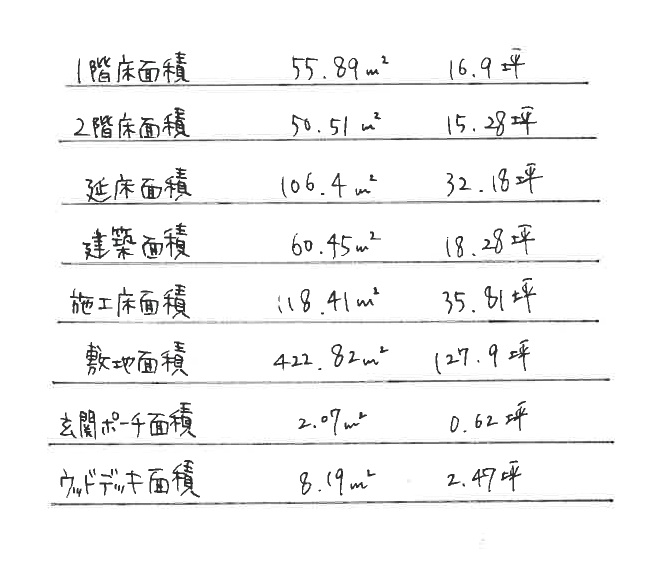 1階床面積 55.89㎡ 16.9坪
2階床面積 50.51㎡ 15.28坪
延床面積 106.4㎡ 32.18坪
建築面積 60.45㎡ 18.28坪
施工床面積 118.41㎡ 35.81坪
敷地面積 422.82㎡ 127.9坪
玄関ポーチ面積 2.07㎡ 0.62坪
ウッドデッキ面積 8.19㎡ 2.47坪